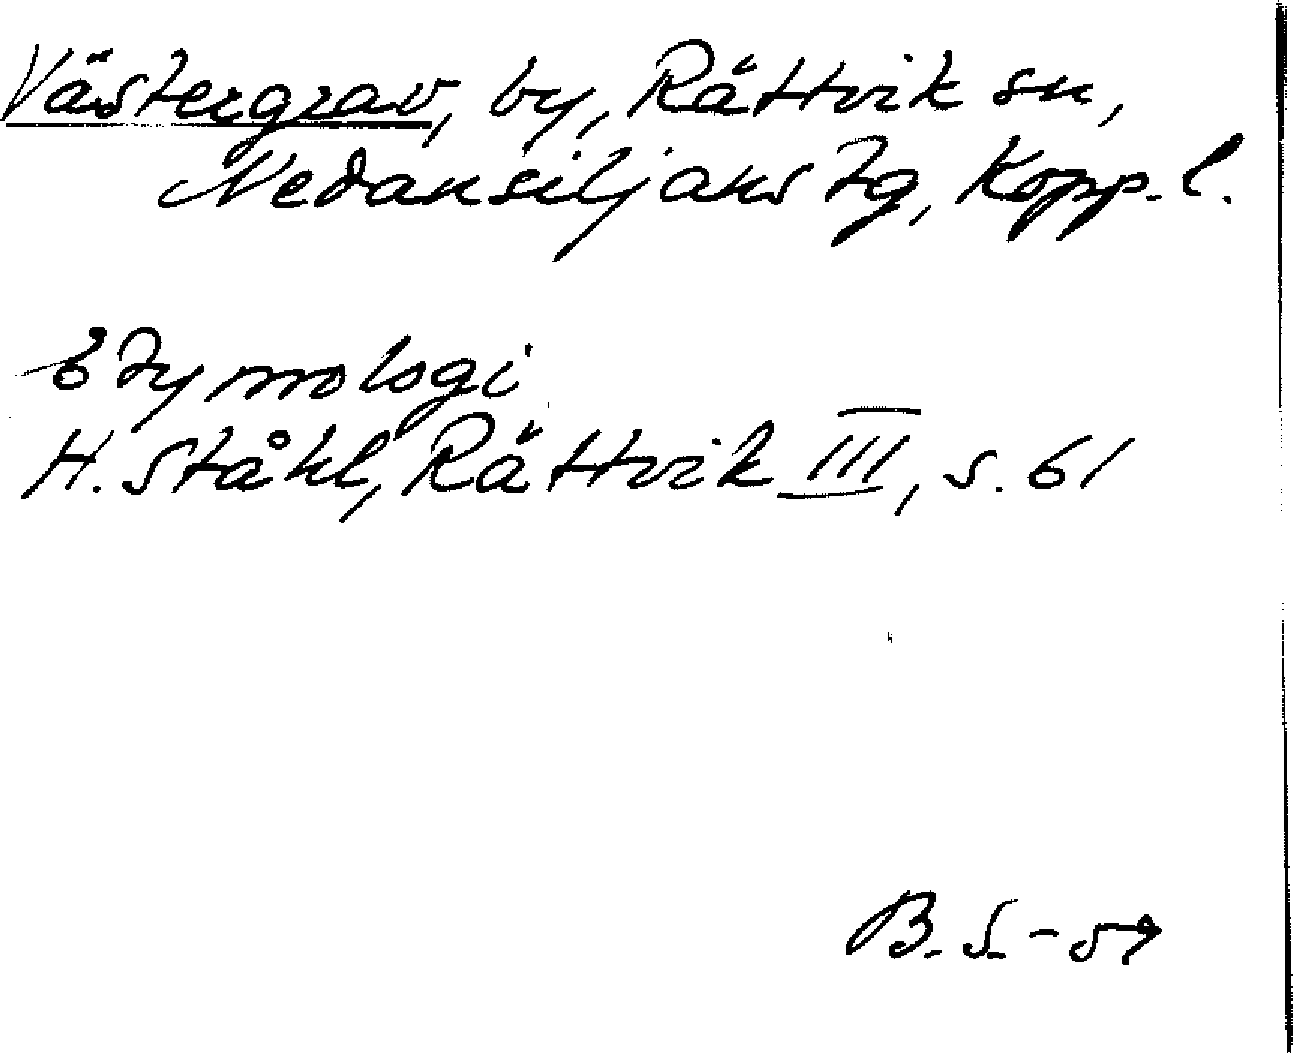 Västergrav, by, Rättvik sn,
Nedansiljans tg, Kopp. l.
Etymologi
H. Ståhl, Rättvik III, s. 61
B. S. -